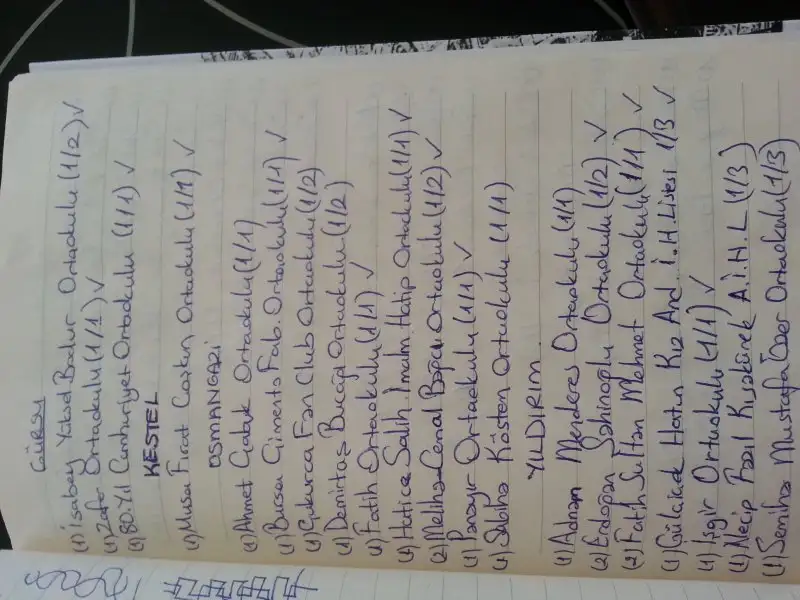 GÜRSU
(1) İsabey Yusuf Bodur Ortaokulu (1/2) ✓
(1) Zafer Ortaokulu (1/1) ✓
(1) 80. Yıl Cumhuriyet Ortaokulu (1/1) ✓
KESTEL
(1) Musa Fırat Coşkun Ortaokulu (1/1) ✓
OSMANGAZİ
(1) Ahmet Ortaokulu (1/1)
(1) Bursa Çimento Fab. Ortaokulu (1/1) ✓
(1) Çukurca Fen Club Ortaokulu (1/2)
(1) Demirtaş Ortaokulu (1/2)
(1) Fatih Ortaokulu (1/1) ✓
(1) Hatice Salih İmam Hatip Ortaokulu (1/1) ✓
(2) Meliha Cenal Ortaokulu (1/2) ✓
(1) Panayır Ortaokulu (1/1) ✓
(1) Sabiha Kösten Ortaokulu (1/1)
YILDIRIM
(1) Adnan Menderes Ortaokulu (1/1)
(2) Erdoğan Şahinoğlu Ortaokulu (1/2) ✓
(2) Fatih Sultan Mehmet Ortaokulu (1/1) ✓
(1) Gülçiçek Hatun Kız And İ.H Lisesi 1/3 ✓
(1) Işgır Ortaokulu (1/1) ✓
(1) Necip Fazıl Kısakürek A.İ.H.L (1/3)
(1) Semiha Mustafa Özer Ortaokulu (1/3)